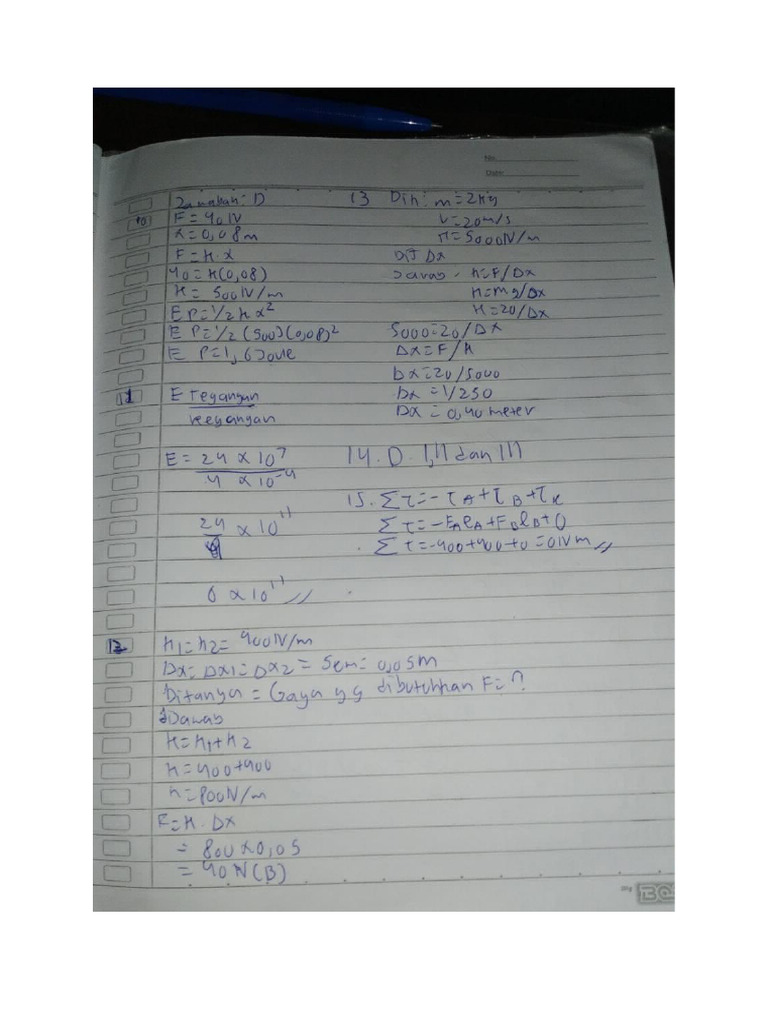 No:
Date:
Jawaban: D
10 F = 40 N
x = 0,08 m
F = k . x
40 = k (0,08)
k = 500 N/m
E P = 1/2 k x²
E P = 1/2 (500) (0,08)²
E P = 1,6 Joule
11 E Tegangan
Regangan
E = 24 x 10⁷
4 x 10⁻⁴
24 x 10¹¹
4
6 x 10¹¹ //
12 k1 = k2 = 400 N/m
Dx = Dx1 = Dx2 = 5cm = 0,05m
Ditanya = Gaya yg dibutuhkan F = ?
Jawab
k = k1 + k2
k = 400 + 400
k = 800 N/m
F = k . Dx
= 800 x 0,05
= 40 N (B)
13 Dik : m = 2 kg
v = 20 m/s
k = 5000 N/m
Dit Dx
Jawab . k = F/Dx
k = mg/Dx
k = 20/Dx
5000 = 20/Dx
Dx = F/k
Dx = 20/5000
Dx = 1/250
Dx = 0,40 meter
14. D. I, II dan III
15. Στ = -τA + τB + τk
Στ = -FAlA + FBlB + 0
Στ = -400 + 400 + 0 = 0 N m //